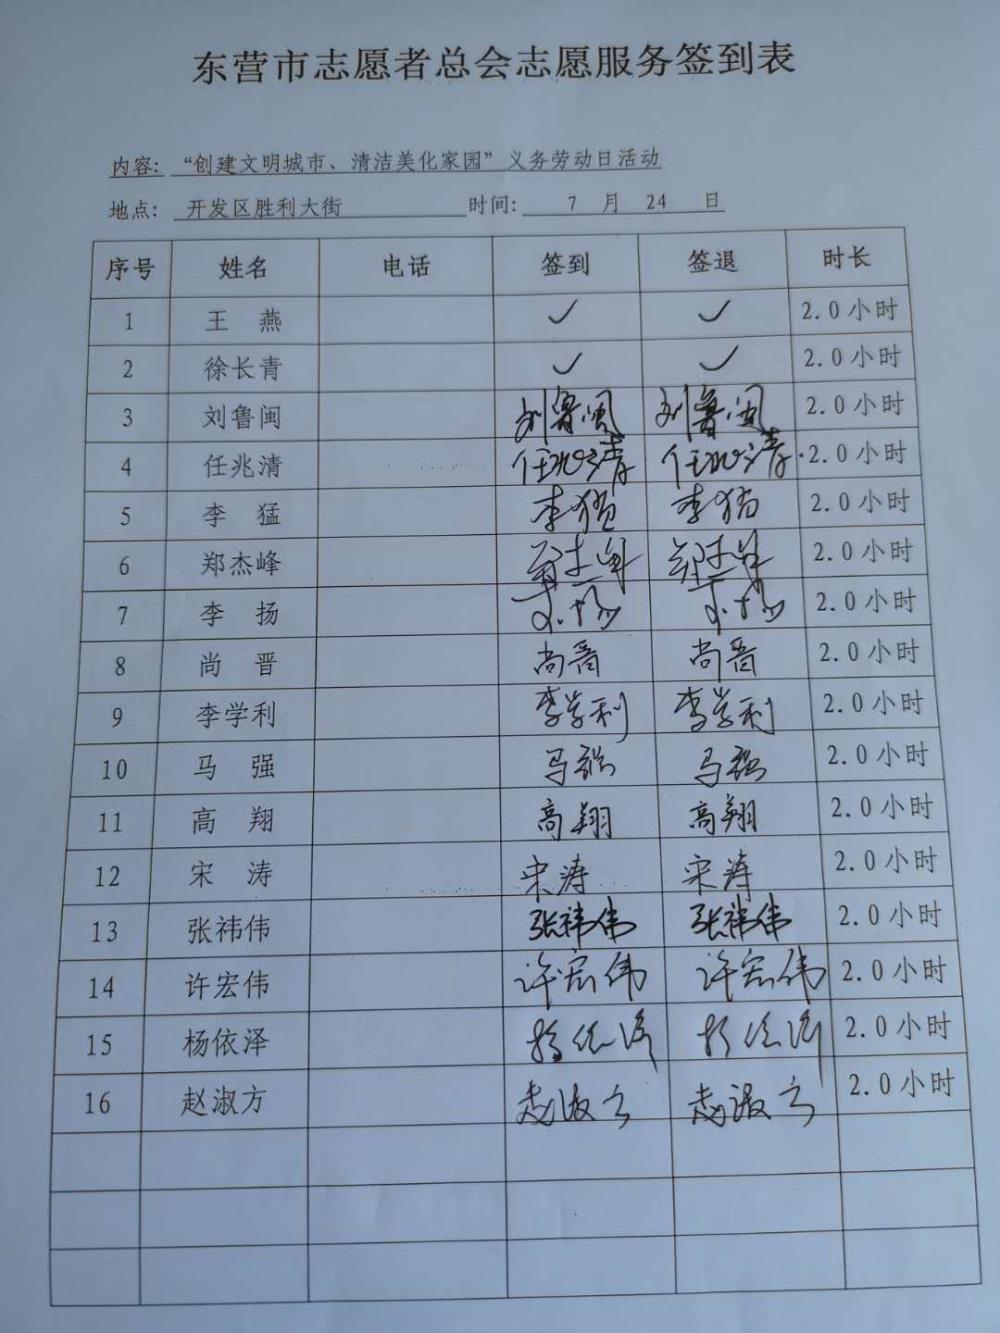 东营市志愿者总会志愿服务签到表
内容: “创建文明城市、清洁美化家园”义务劳动日活动
地点: 开发区胜利大街 时间: 7 月 24 日
序号 姓名 电话 签到 签退 时长
1 王 燕 ✓ ✓ 2.0小时
2 徐长青 ✓ ✓ 2.0小时
3 刘鲁闽 刘鲁闽 刘鲁闽 2.0小时
4 任兆清 任兆清 任兆清 2.0小时
5 李 猛 李猛 李猛 2.0小时
6 郑杰峰 郑杰峰 郑杰峰 2.0小时
7 李 扬 李扬 李扬 2.0小时
8 尚 晋 尚晋 尚晋 2.0小时
9 李学利 李学利 李学利 2.0小时
10 马 强 马强 马强 2.0小时
11 高 翔 高翔 高翔 2.0小时
12 宋 涛 宋涛 宋涛 2.0小时
13 张祎伟 张祎伟 张祎伟 2.0小时
14 许宏伟 许宏伟 许宏伟 2.0小时
15 杨依泽 杨依泽 杨依泽 2.0小时
16 赵淑方 赵淑方 赵淑方 2.0小时